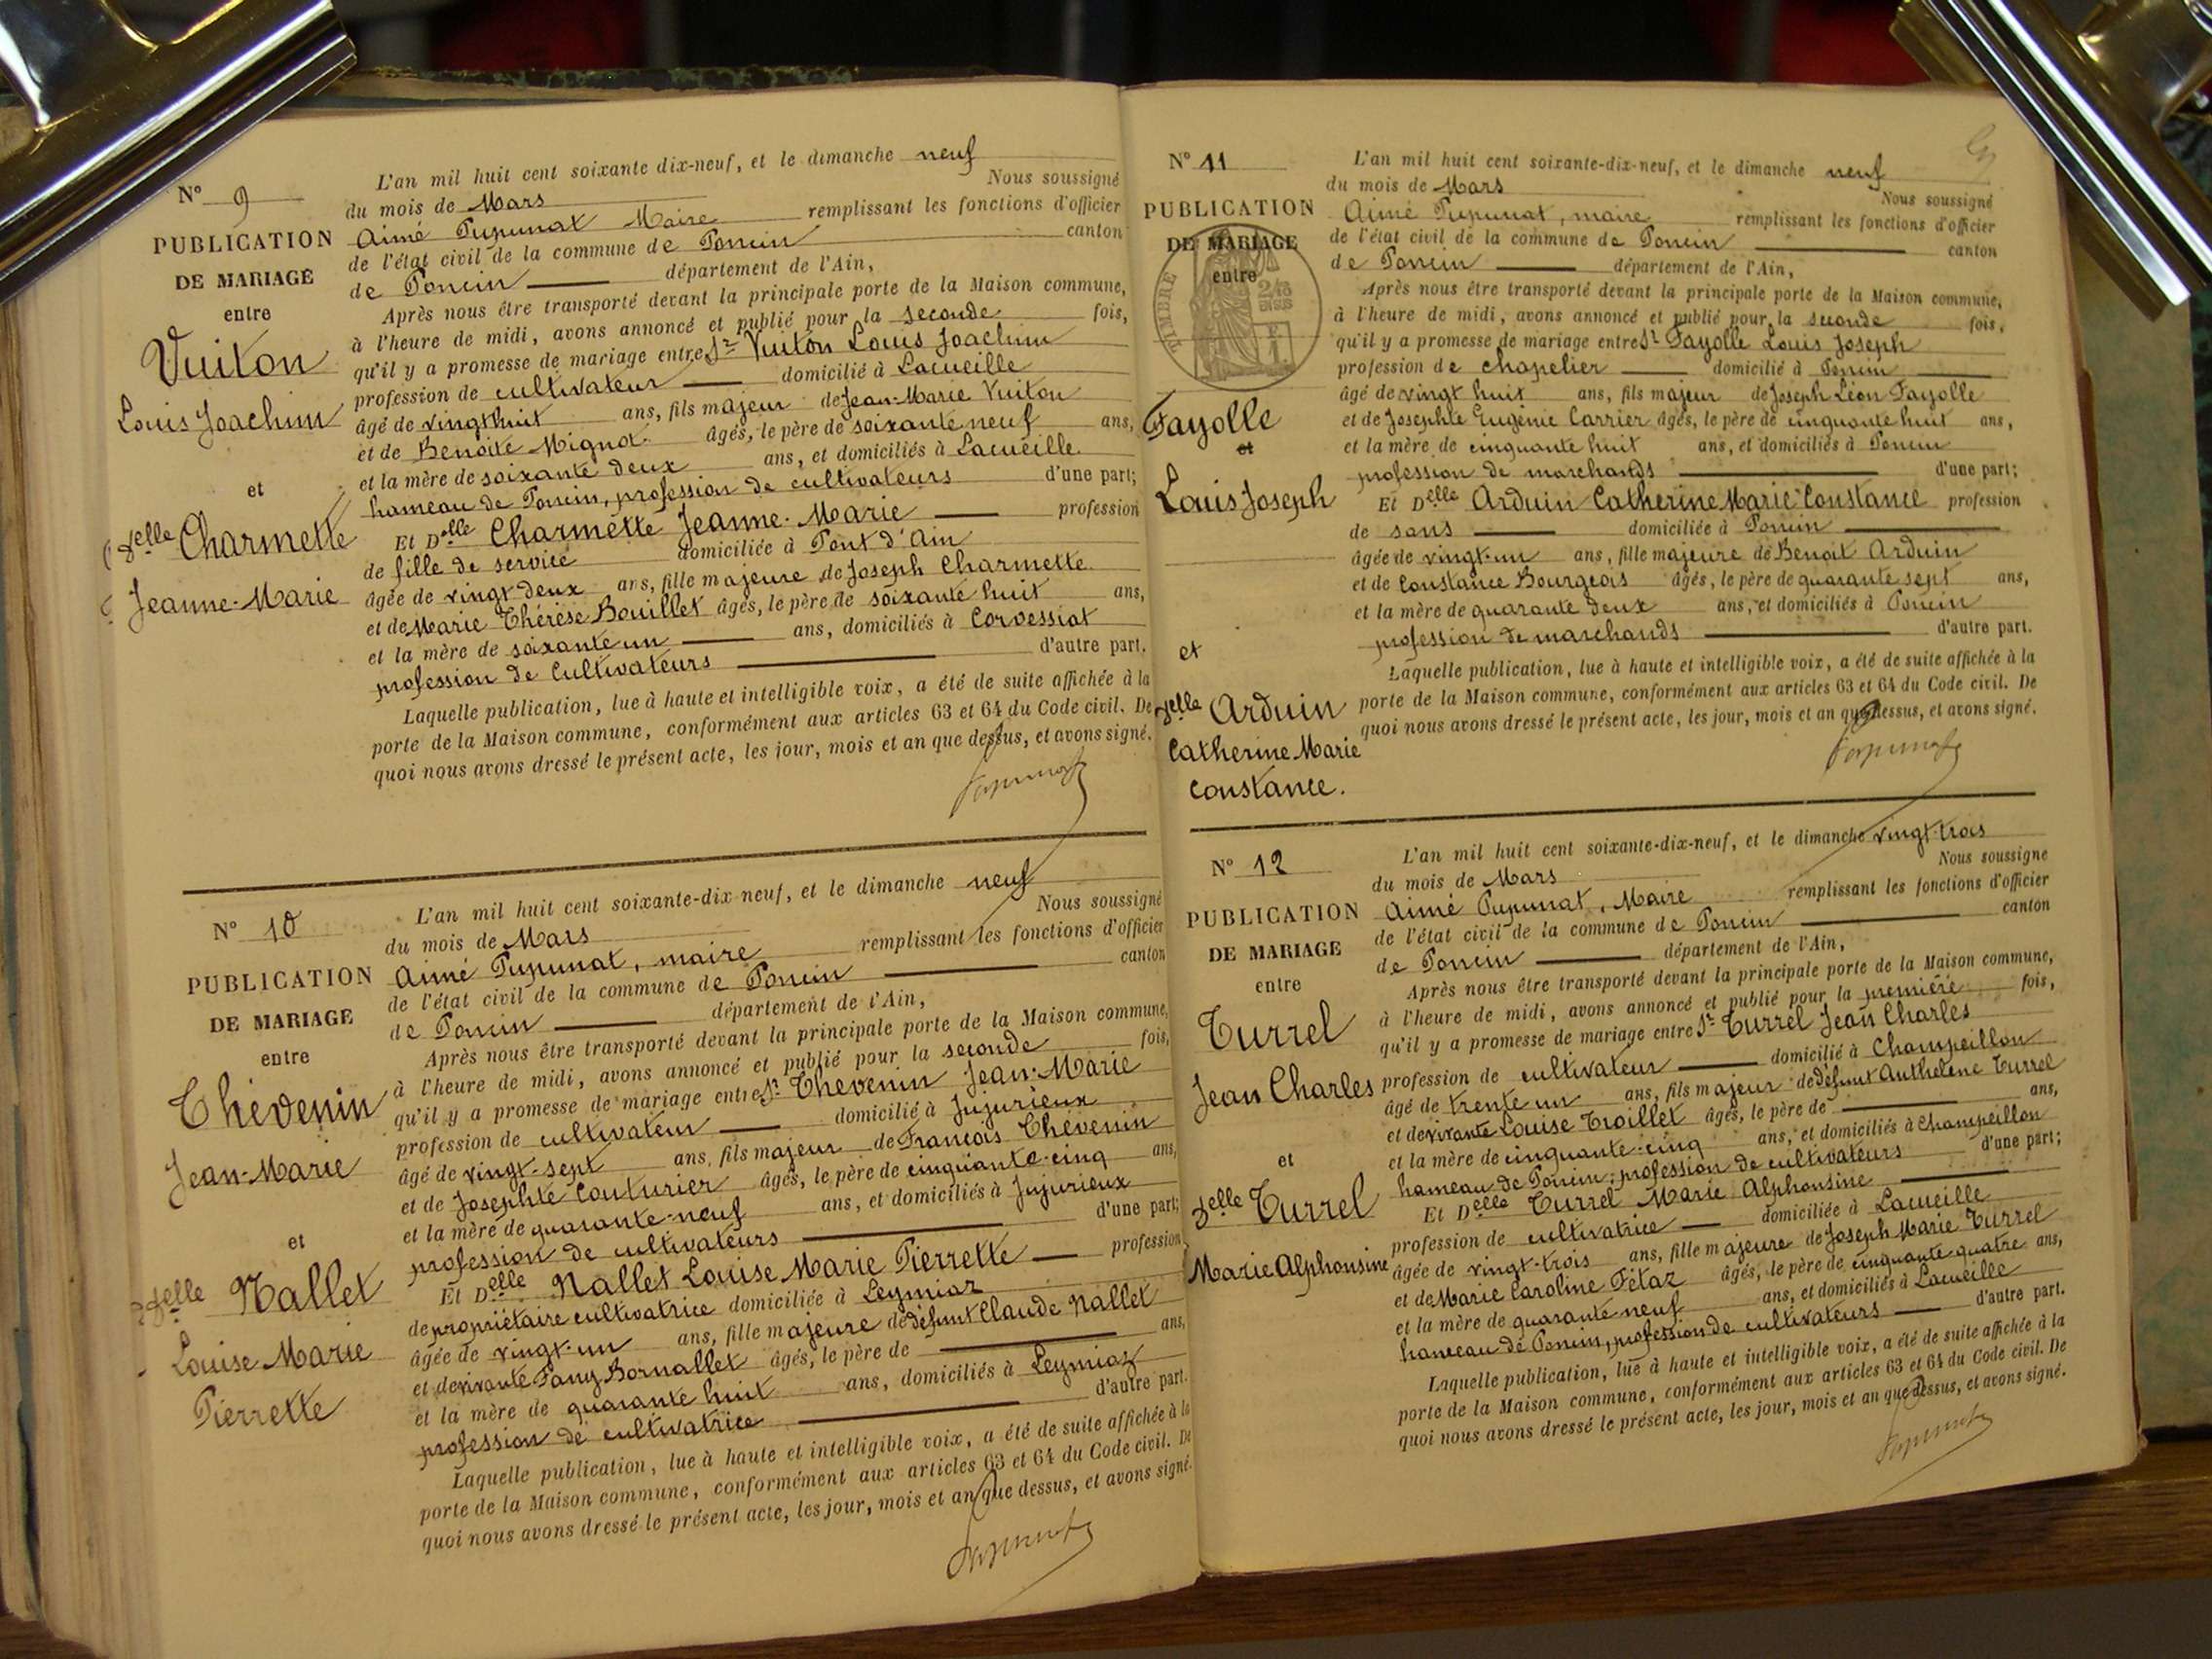 N° 9
PUBLICATION
DE MARIAGE
entre
Vuiton
Louis Joachim
et
Delle Charmette
Jeanne-Marie
L'an mil huit cent soixante dix-neuf, et le dimanche neuf
du mois de Mars Nous soussigné
Aimé Pupunat Maire remplissant les fonctions d'officier
de l'état civil de la commune de Poncin canton
de Poncin département de l'Ain,
Après nous être transporté devant la principale porte de la Maison commune,
à l'heure de midi, avons annoncé et publié pour la seconde fois,
qu'il y a promesse de mariage entre Sr Vuiton Louis Joachim
profession de cultivateur domicilié à Lacueille
âgé de vingt huit ans, fils majeur de Jean-Marie Vuiton
et de Benoite Mignot âgés, le père de soixante neuf ans,
et la mère de soixante deux ans, et domiciliés à Lacueille
hameau de Poncin, profession de cultivateurs d'une part;
Et Delle Charmette Jeanne-Marie profession
de fille de service domiciliée à Pont d'ain
âgée de vingt-deux ans, fille majeure de Joseph Charmette
et de Marie Thérèse Bouillet âgés, le père de soixante huit ans,
et la mère de soixante un ans, domiciliés à Corvessiat
profession de Cultivateurs d'autre part.
Laquelle publication, lue à haute et intelligible voix, a été de suite affichée à la
porte de la Maison commune, conformément aux articles 63 et 64 du Code civil. De
quoi nous avons dressé le présent acte, les jour, mois et an que dessus, et avons signé.
Pupunat
N° 10
PUBLICATION
DE MARIAGE
entre
Thévenin
Jean-Marie
et
Delle Nallet
Louise Marie
Pierrette
L'an mil huit cent soixante-dix neuf, et le dimanche neuf
du mois de Mars Nous soussigné
Aimé Pupunat, maire remplissant les fonctions d'officier
de l'état civil de la commune de Poncin canton
de Poncin département de l'Ain,
Après nous être transporté devant la principale porte de la Maison commune,
à l'heure de midi, avons annoncé et publié pour la seconde fois,
qu'il y a promesse de mariage entre Sr Thévenin Jean-Marie
profession de cultivateur domicilié à Jujurieux
âgé de vingt-sept ans, fils majeur de François Thévenin
et de Josephte Couturier âgés, le père de cinquante-cinq ans,
et la mère de quarante-neuf ans, et domiciliés à Jujurieux
profession de cultivateurs d'une part;
Et Delle Nallet Louise Marie Pierrette profession
de propriétaire cultivatrice domiciliée à Leymiaz
âgée de vingt-un ans, fille majeure de défunt Claude Nallet
et de vivante Fany Bornallet âgés, le père de ans,
et la mère de quarante huit ans, domiciliés à Leymiaz
profession de cultivatrice d'autre part.
Laquelle publication, lue à haute et intelligible voix, a été de suite affichée à la
porte de la Maison commune, conformément aux articles 63 et 64 du Code civil. De
quoi nous avons dressé le présent acte, les jour, mois et an que dessus, et avons signé.
Pupunat
N° 11
PUBLICATION
DE MARIAGE
entre
TIMBRE
Fayolle
et
Louis Joseph
et
Delle Arduin
Catherine Marie
Constance.
L'an mil huit cent soixante-dix-neuf, et le dimanche neuf
du mois de Mars Nous soussigné
Aimé Pupunat, maire remplissant les fonctions d'officier
de l'état civil de la commune de Poncin canton
de Poncin département de l'Ain,
Après nous être transporté devant la principale porte de la Maison commune,
à l'heure de midi, avons annoncé et publié pour la seconde fois,
qu'il y a promesse de mariage entre Sr Fayolle Louis Joseph
profession de chapelier domicilié à Poncin
âgé de vingt huit ans, fils majeur de Joseph Léon Fayolle
et de Josephte Eugénie Carrier âgés, le père de cinquante huit ans,
et la mère de cinquante huit ans, et domiciliés à Poncin
profession de marchands d'une part;
Et Delle Arduin Catherine Marie Constance profession
de sans domiciliée à Poncin
âgée de vingt-un ans, fille majeure de Benoit Arduin
et de Constance Bourgeois âgés, le père de quarante sept ans,
et la mère de quarante deux ans, et domiciliés à Poncin
profession de marchands d'autre part.
Laquelle publication, lue à haute et intelligible voix, a été de suite affichée à la
porte de la Maison commune, conformément aux articles 63 et 64 du Code civil. De
quoi nous avons dressé le présent acte, les jour, mois et an que dessus, et avons signé.
Pupunat
N° 12
PUBLICATION
DE MARIAGE
entre
Turrel
Jean Charles
et
Delle Turrel
Marie Alphonsine
L'an mil huit cent soixante-dix-neuf, et le dimanche vingt-trois
du mois de Mars Nous soussigné
Aimé Pupunat, Maire remplissant les fonctions d'officier
de l'état civil de la commune de Poncin canton
de Poncin département de l'Ain,
Après nous être transporté devant la principale porte de la Maison commune,
à l'heure de midi, avons annoncé et publié pour la première fois,
qu'il y a promesse de mariage entre Sr Turrel Jean Charles
profession de cultivateur domicilié à Champeillon
âgé de trente un ans, fils majeur de défunt Anthelme Turrel
et de vivante Louise Troillet âgés, le père de ans,
et la mère de cinquante-cinq ans, et domiciliés à Champeillon
hameau de Poncin, profession de cultivateurs d'une part;
Et Delle Turrel Marie Alphonsine
profession de cultivatrice domiciliée à Lacueille
âgée de vingt-trois ans, fille majeure de Joseph Marie Turrel
et de Marie Caroline Fétaz âgés, le père de cinquante quatre ans,
et la mère de quarante-neuf ans, et domiciliés à Lacueille
hameau de Poncin, profession de cultivateurs d'autre part.
Laquelle publication, lue à haute et intelligible voix, a été de suite affichée à la
porte de la Maison commune, conformément aux articles 63 et 64 du Code civil. De
quoi nous avons dressé le présent acte, les jour, mois et an que dessus, et avons signé.
Pupunat